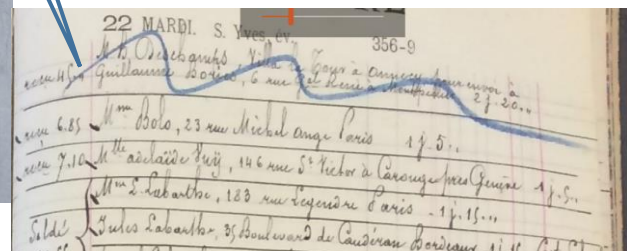 22 MARDI. S. Yves, év. 356-9
Mr B. Deschamps, Villa la Tour à Annecy pour envoi à
Guillaume Borios, 6 rue à Montpellier 2 f. 20..
reçu 6.85 Mme Bolo, 23 rue Michel ange Paris 1 f. 5..
reçu 7.10 Mlle adélaïde 146 rue St Victor à Carouge près Genève 1 f. 5..
Soldé Mme E. Labarthe, 183 rue Legendre Paris - 1 f. 15..
Jules Labarthe, 35 Boulevard de Caudéran Bordeaux